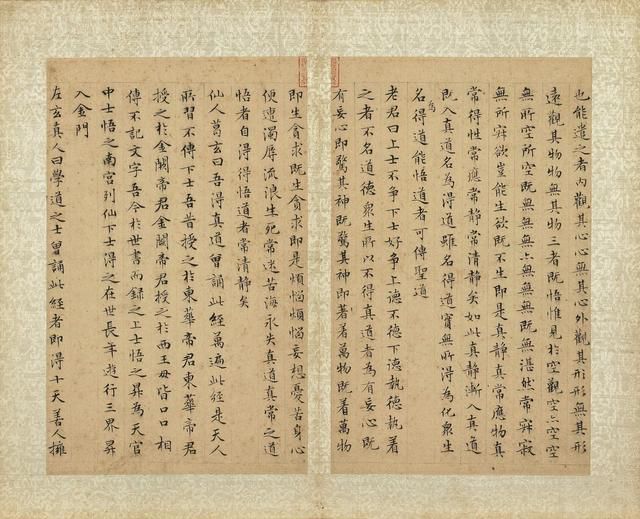 也能遣之者內觀其心心無其心外觀其形形無其形
遠觀其物物無其物三者既悟惟見於空觀空亦空空
無所空所空既無無無亦無無無既無湛然常寂寂
無所寂欲豈能生欲既不生即是真靜真常應物真
常得性常應常靜常清靜矣如此真靜漸入真道
既入真道名為得道雖名得道實無所得為化眾生
名為得道能悟道者可傳聖道
老君曰上士不爭下士好爭上德不德下德執德執著
之者不名道德眾生所以不得真道者為有妄心既
有妄心即驚其神既驚其神即著萬物既著萬物
即生貪求既生貪求即是煩惱煩惱妄想憂苦身心
便遭濁辱流浪生死常沈苦海永失真道真常之道
悟者自得得悟道者常清靜矣
仙人葛玄曰吾得真道曾誦此經萬遍此經是天人
所習不傳下士吾昔授之於東華帝君東華帝君
授之於金闕帝君金闕帝君授之於西王母皆口口相
傳不記文字吾今於世書而錄之上士悟之昇為天官
中士悟之南宮列仙下士得之在世長年遊行三界昇
入金門
左玄真人曰學道之士曾誦此經者即得十天善人擁